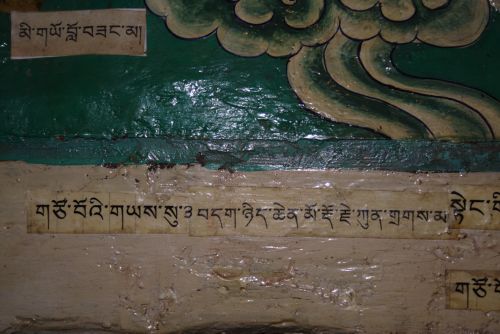 མི་གཡོ་བློ་བཟང་མ།
གཙོ་བོའི་གཡས་སུ་༣་བདག་ཉིད་ཆེན་མོ་རྡོ་རྗེ་ཀུན་གྲགས་མ
སྟེང་
གཙོ་